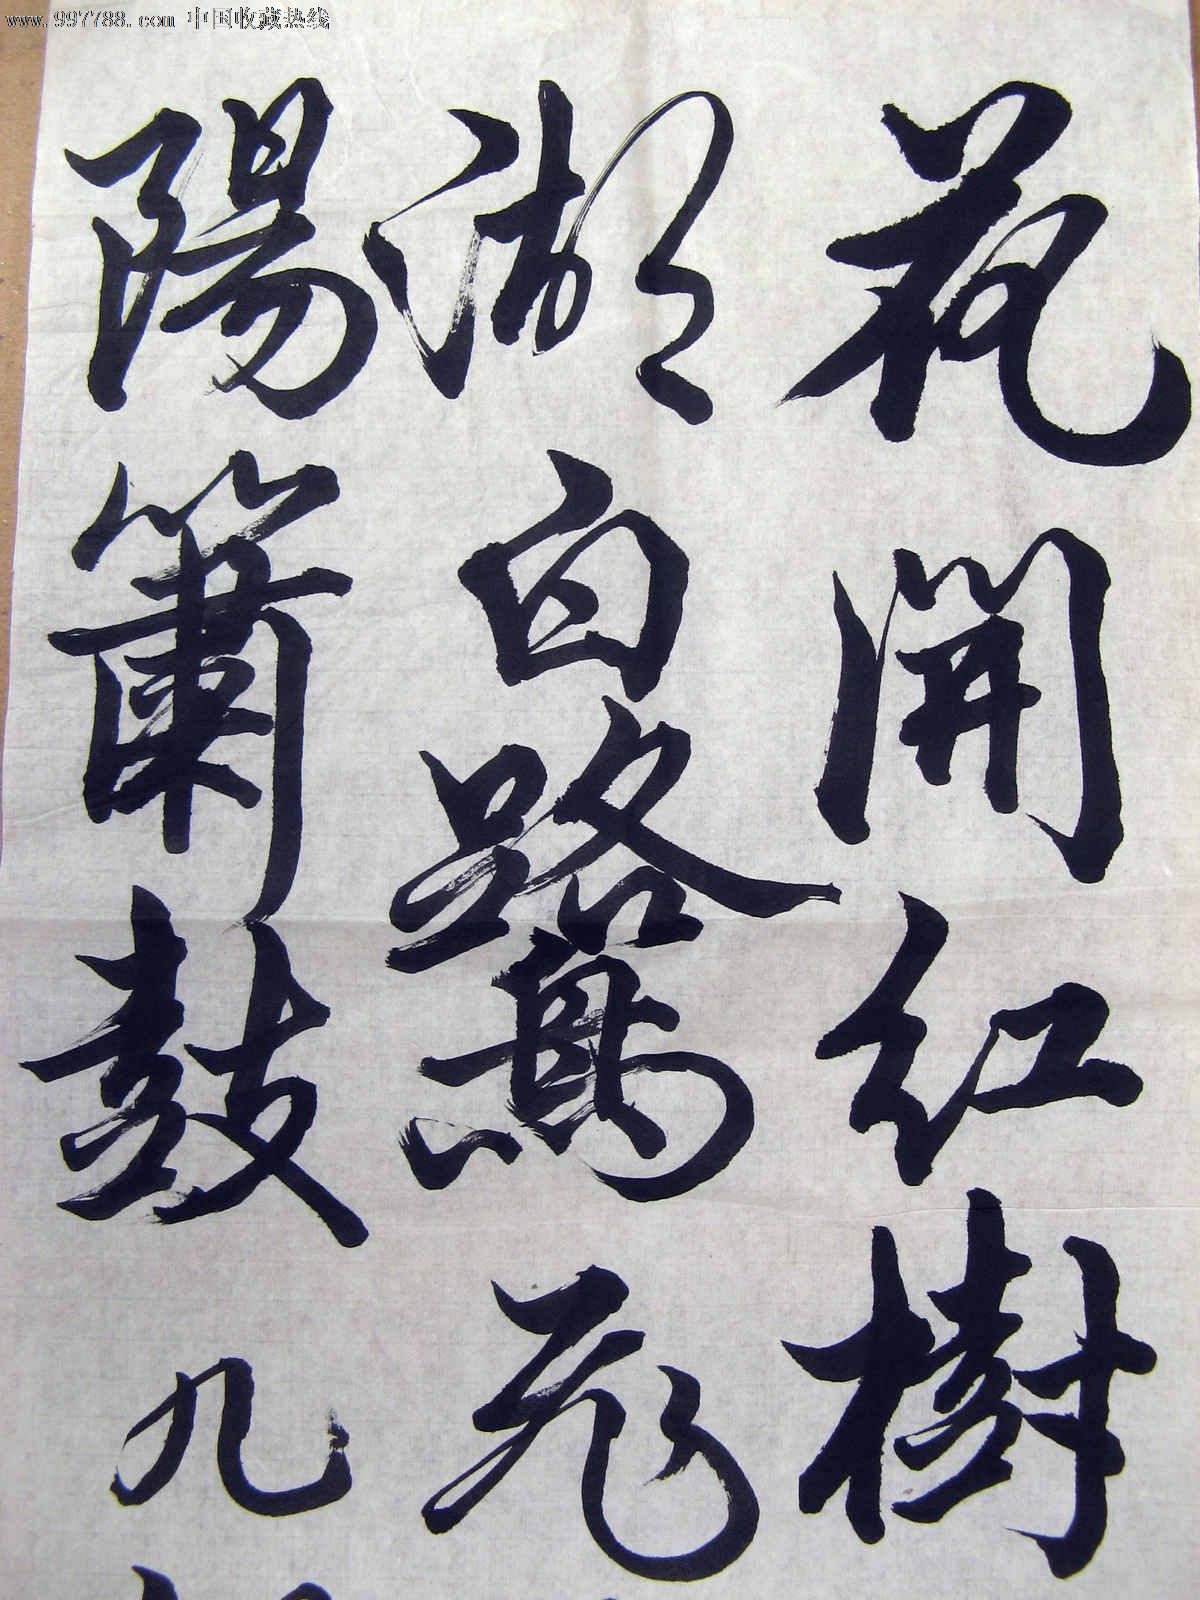 www.997788.com 中国收藏热线
花開紅樹
湖白鷺飛
陽簫鼓几